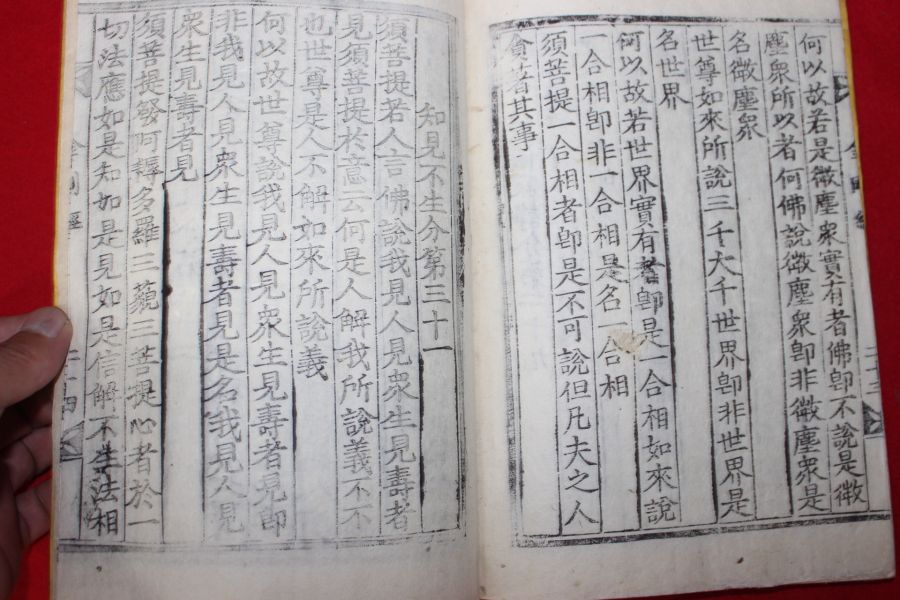 金剛經 二十三
何以故若是微塵衆實有者佛卽不說是微
塵衆所以者何佛說微塵衆卽非微塵衆是
名微塵衆
世尊如來所說三千大千世界卽非世界是
名世界
何以故若世界實有者卽是一合相如來說
一合相卽非一合相是名一合相
須菩提一合相者卽是不可說但凡夫之人
貪著其事
知見不生分第三十一
須菩提若人言佛說我見人見衆生見壽者
見須菩提於意云何是人解我所說義不不
也世尊是人不解如來所說義
何以故世尊說我見人見衆生見壽者見卽
非我見人見衆生見壽者見是名我見人見
衆生見壽者見
須菩提發阿耨多羅三藐三菩提心者於一
切法應如是知如是見如是信解不生法相
金剛經 二十四